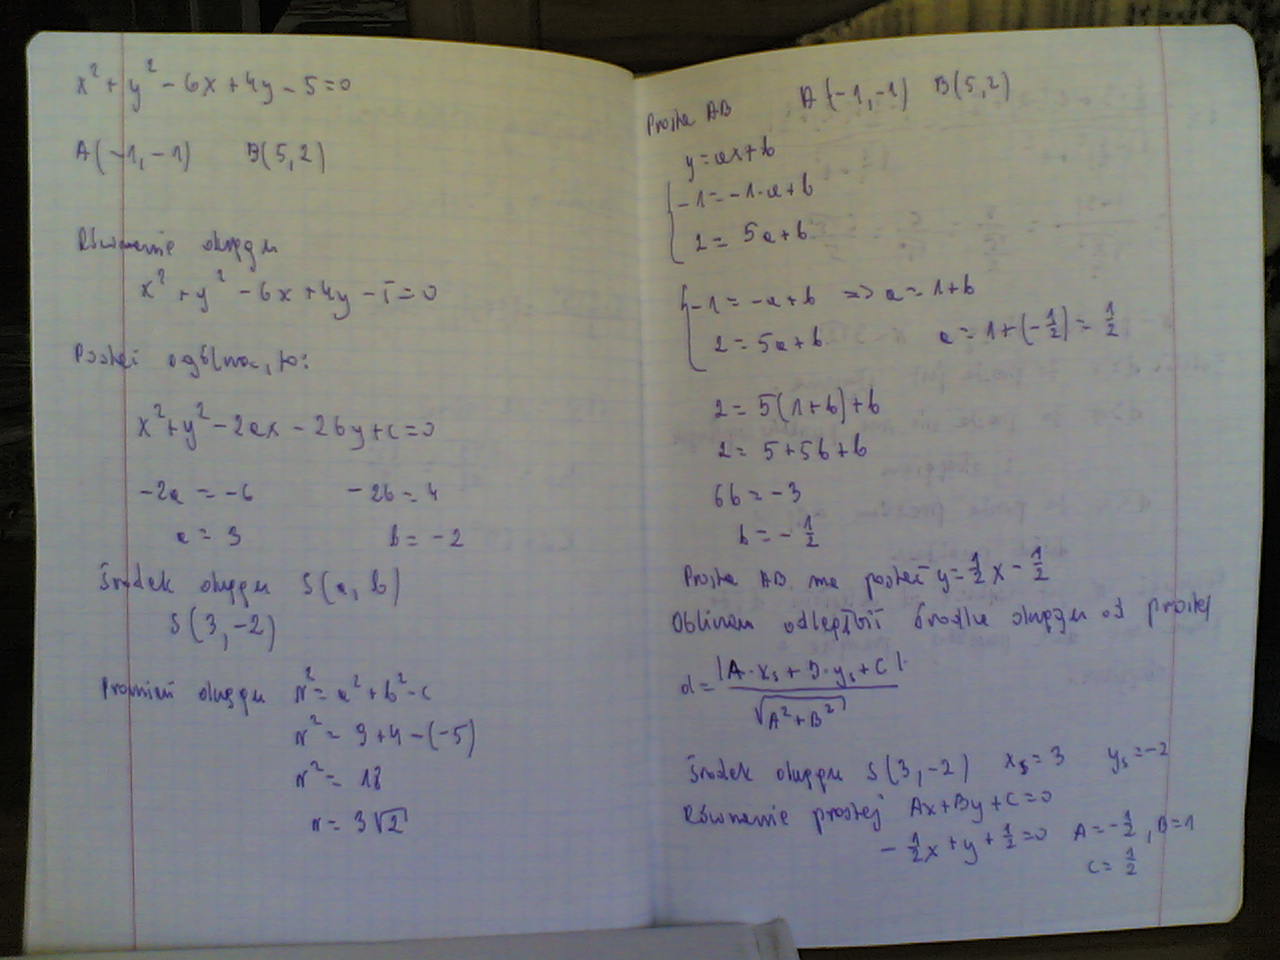 x² + y² - 6x + 4y - 5 = 0
A(-1, -1) B(5, 2)
Równanie okręgu
x² + y² - 6x + 4y - 5 = 0
Postać ogólna, to:
x² + y² - 2ax - 2by + c = 0
-2a = -6 -2b = 4
a = 3 b = -2
Środek okręgu S(a, b)
S(3, -2)
Promień okręgu r² = a² + b² - c
r² = 9 + 4 - (-5)
r² = 18
r = 3√2
Prosta AB A(-1, -1) B(5, 2)
y = ax + b
-1 = -1·a + b
2 = 5a + b
-1 = -a + b => a = 1 + b
2 = 5a + b a = 1 + (-1/2) = 1/2
2 = 5(1 + b) + b
2 = 5 + 5b + b
6b = -3
b = -1/2
Prosta AB ma postać y = 1/2 x - 1/2
Obliczam odległość środka okręgu od prostej
d = |A·xₛ + B·yₛ + C| / √(A² + B²)
Środek okręgu S(3, -2) xₛ = 3 yₛ = -2
Równanie prostej Ax + By + C = 0
-1/2 x + y + 1/2 = 0 A = -1/2, B = 1
C = 1/2